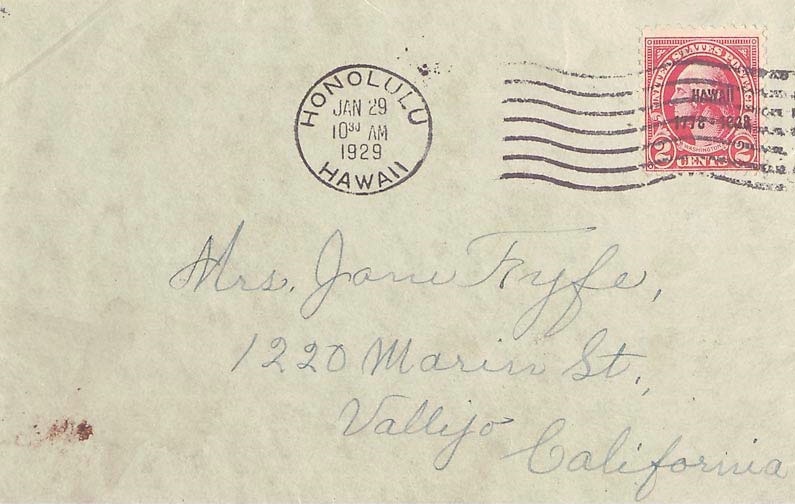 HONOLULU
JAN 29
10 30 AM
1929
HAWAII
UNITED STATES POSTAGE
HAWAII
1778 - 1928
WASHINGTON
2 CENTS 2
Mrs. Jane Fyfe,
1220 Marin St.,
Vallejo
California